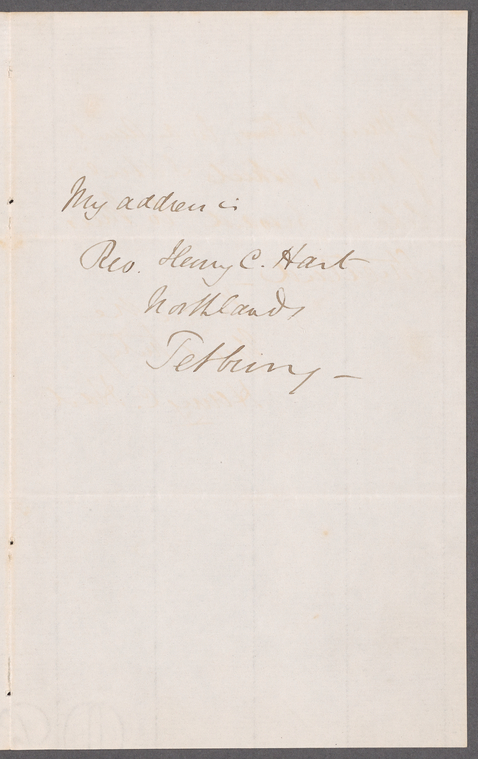 My address is
Rev. Henry C. Hart
Northlands
Tetbury –